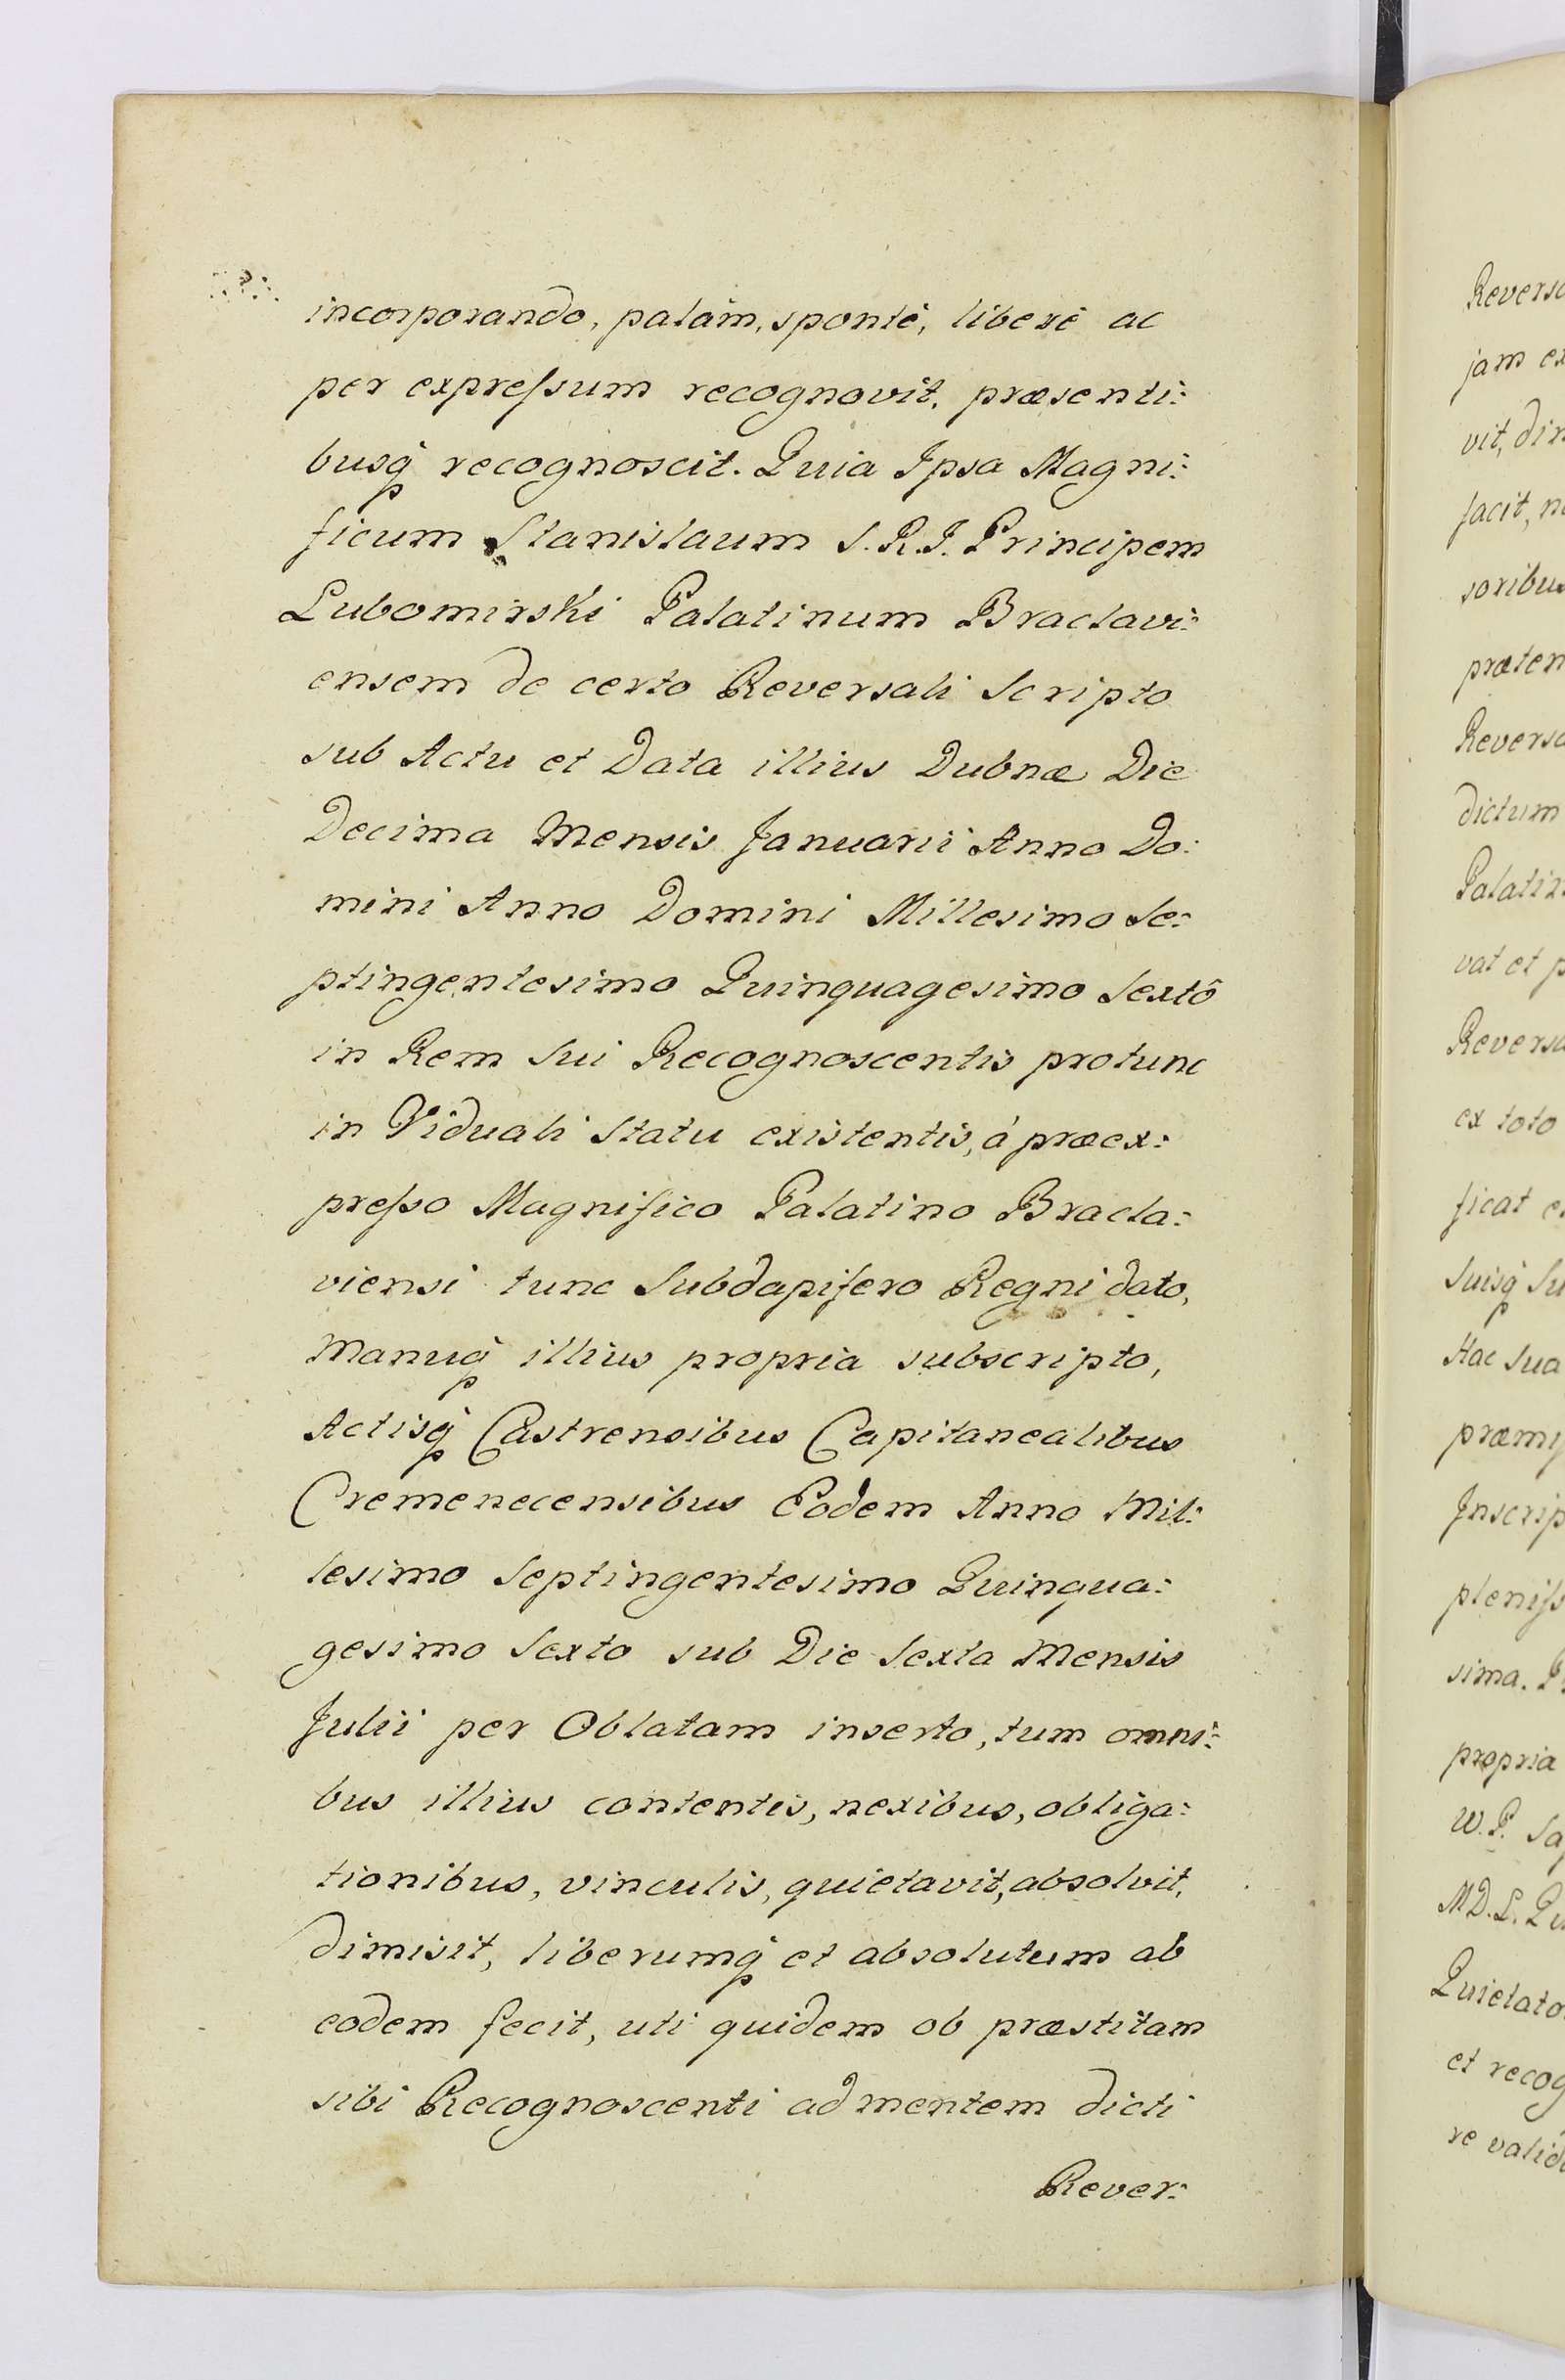 incorporando, palàm, spontè, liberè ac
per expreſsum recognovit, præsenti:
busq̃ recognoscit. Quia Ipsa Magni:
ficum Stanislaum S.R.I. Principem
Lubomirski Palatinum Braclavi:
ensem de certo Reversali Scripto
sub Actu et Data illius Dubnæ Die
Decima Mensis Januarii Anno Do:
mini Anno Domini Millesimo Se:
ptingentesimo Quinquagesimo Sextô
in Rem Sui Recognoscentis protunc
in Viduali Statu existentis, á præex:
preſso Magnifico Palatino Bracla:
viensi tunc Subdapifero Regni dato,
Manuq̃ illius propria subscripto,
Actisq̃ Castrensibus Capitanealibus
Cremenecensibus Eodem Anno Mil:
lesimo Septingentesimo Quinqua:
gesimo Sexto sub Die Sexta Mensis
Julii per Oblatam inserto, tum omni:
bus illius contentis, nexibus, obliga:
tionibus, vinculis, quietavit, absolvit,
dimisit, liberumq̃ et absolutum ab
eodem fecit, uti quidem ob præstitam
sibi Recognoscenti ad mentem dicti
Rever:
Revers
jam ex
vit, di
facit, n
soribus
præten
Revers
dictum
Palatin
vat et p
Revers
ex toto
ficat e
Suisq̃ Su
Hac Sua
præmiſ
Inscrip
pleniſs
sima. P
propria
W.P. Sa
MD.L. Qu
Quietato
et recog
re valid